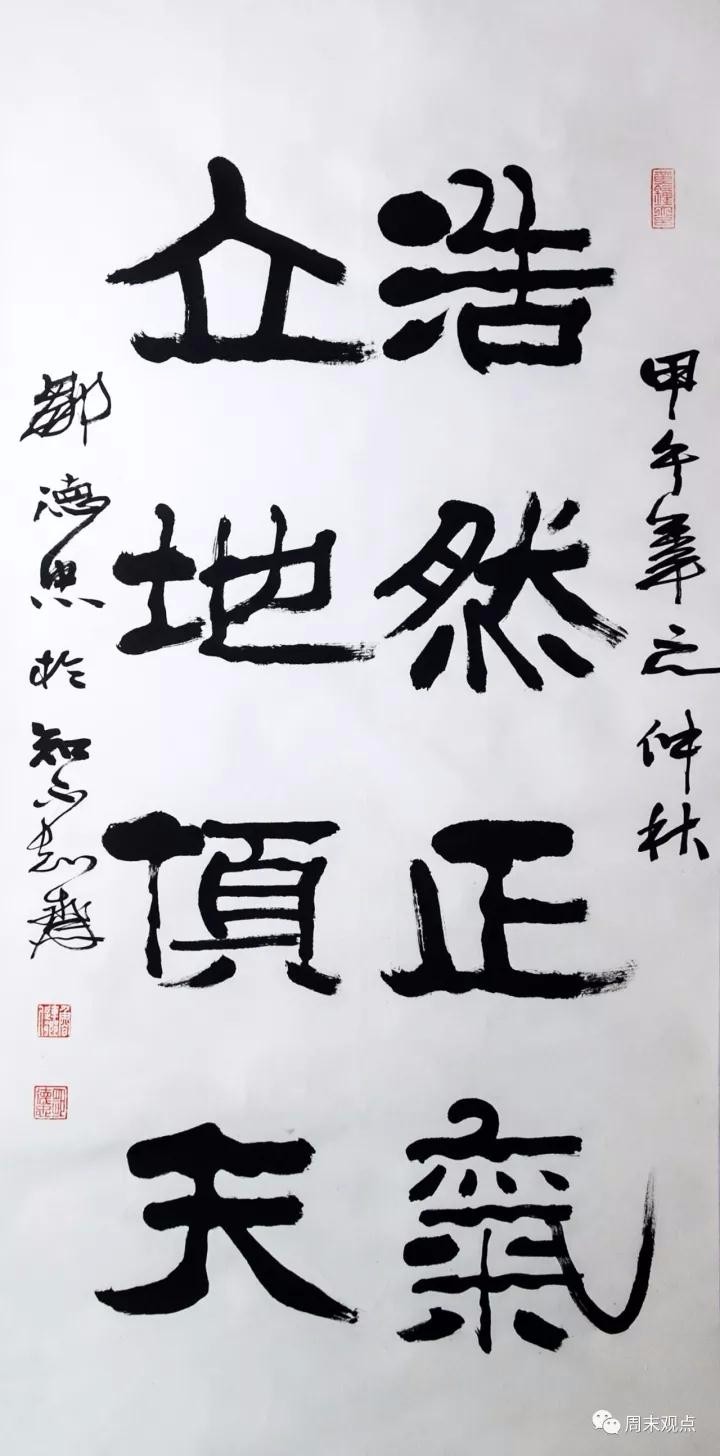 甲午年之仲秋
浩然正氣
立地頂天
德忠於知不知齋
周末观点